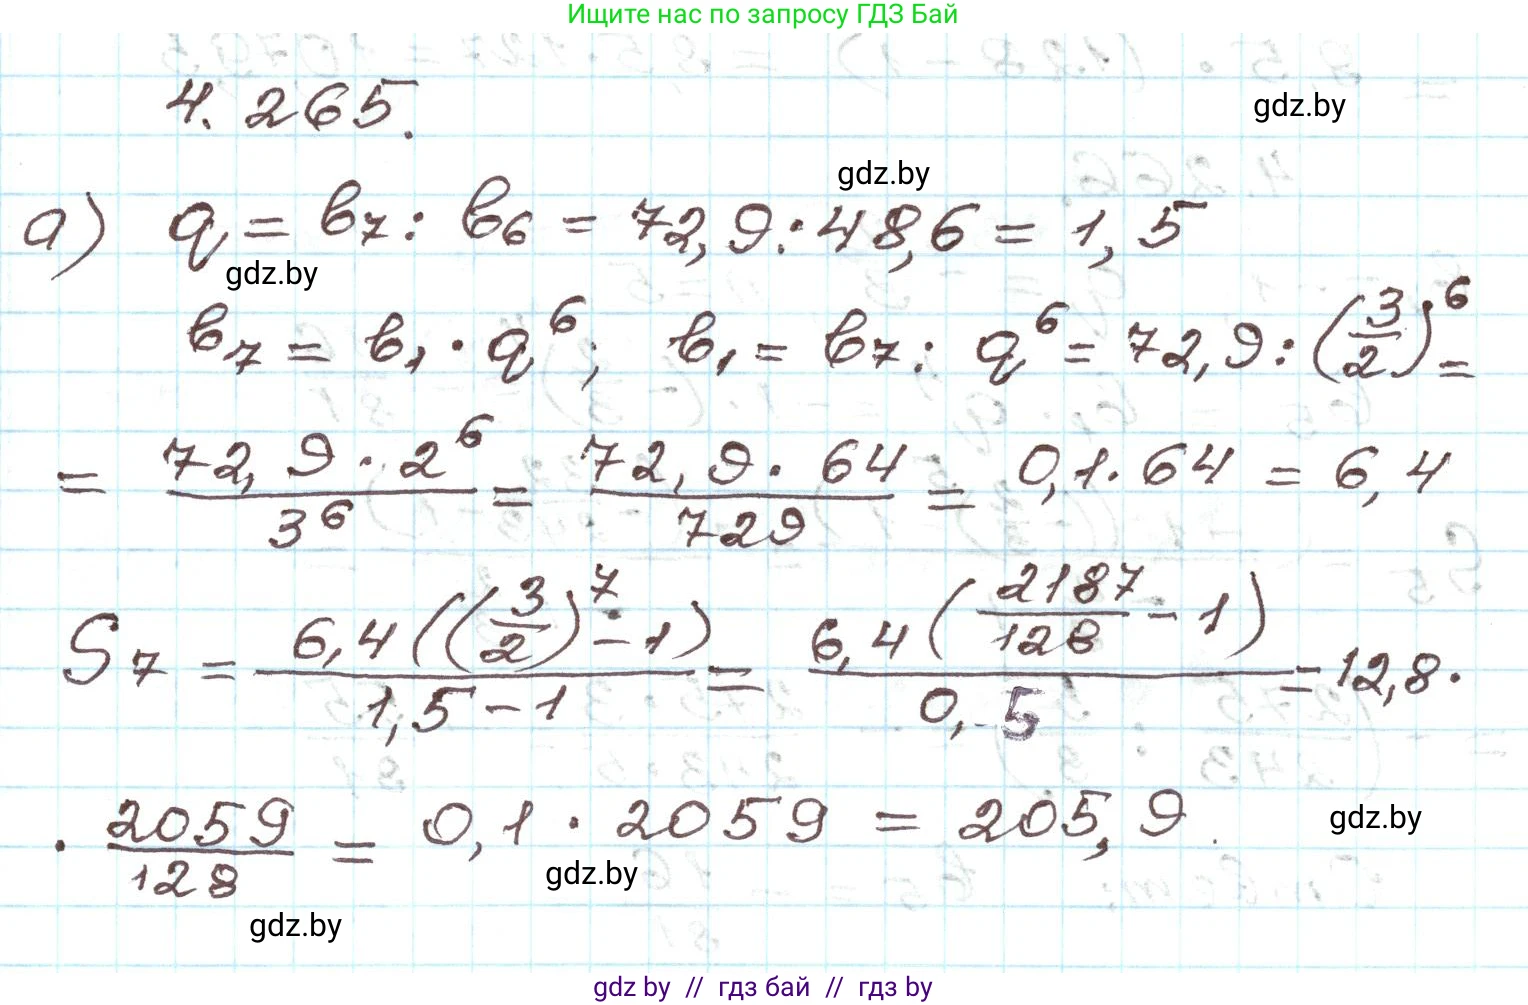 Ищите нас по запросу ГДЗ Бай
4.265.
gdz.by
gdz.by
а) q = b₇ : b₆ = 72,9 : 48,6 = 1,5
gdz.by
b₇ = b₁ · q⁶; b₁ = b₇ : q⁶ = 72,9 : (3/2)⁶ =
= (72,9 · 2⁶)/3⁶ = (72,9 · 64)/729 = 0,1 · 64 = 6,4
S₇ = (6,4((3/2)⁷ - 1))/(1,5 - 1) = (6,4(2187/128 - 1))/0,5 = 12,8 ·
· 2059/128 = 0,1 · 2059 = 205,9.
gdz.by
gdz.by
gdz.by
gdz by // гдз бай // гдз by